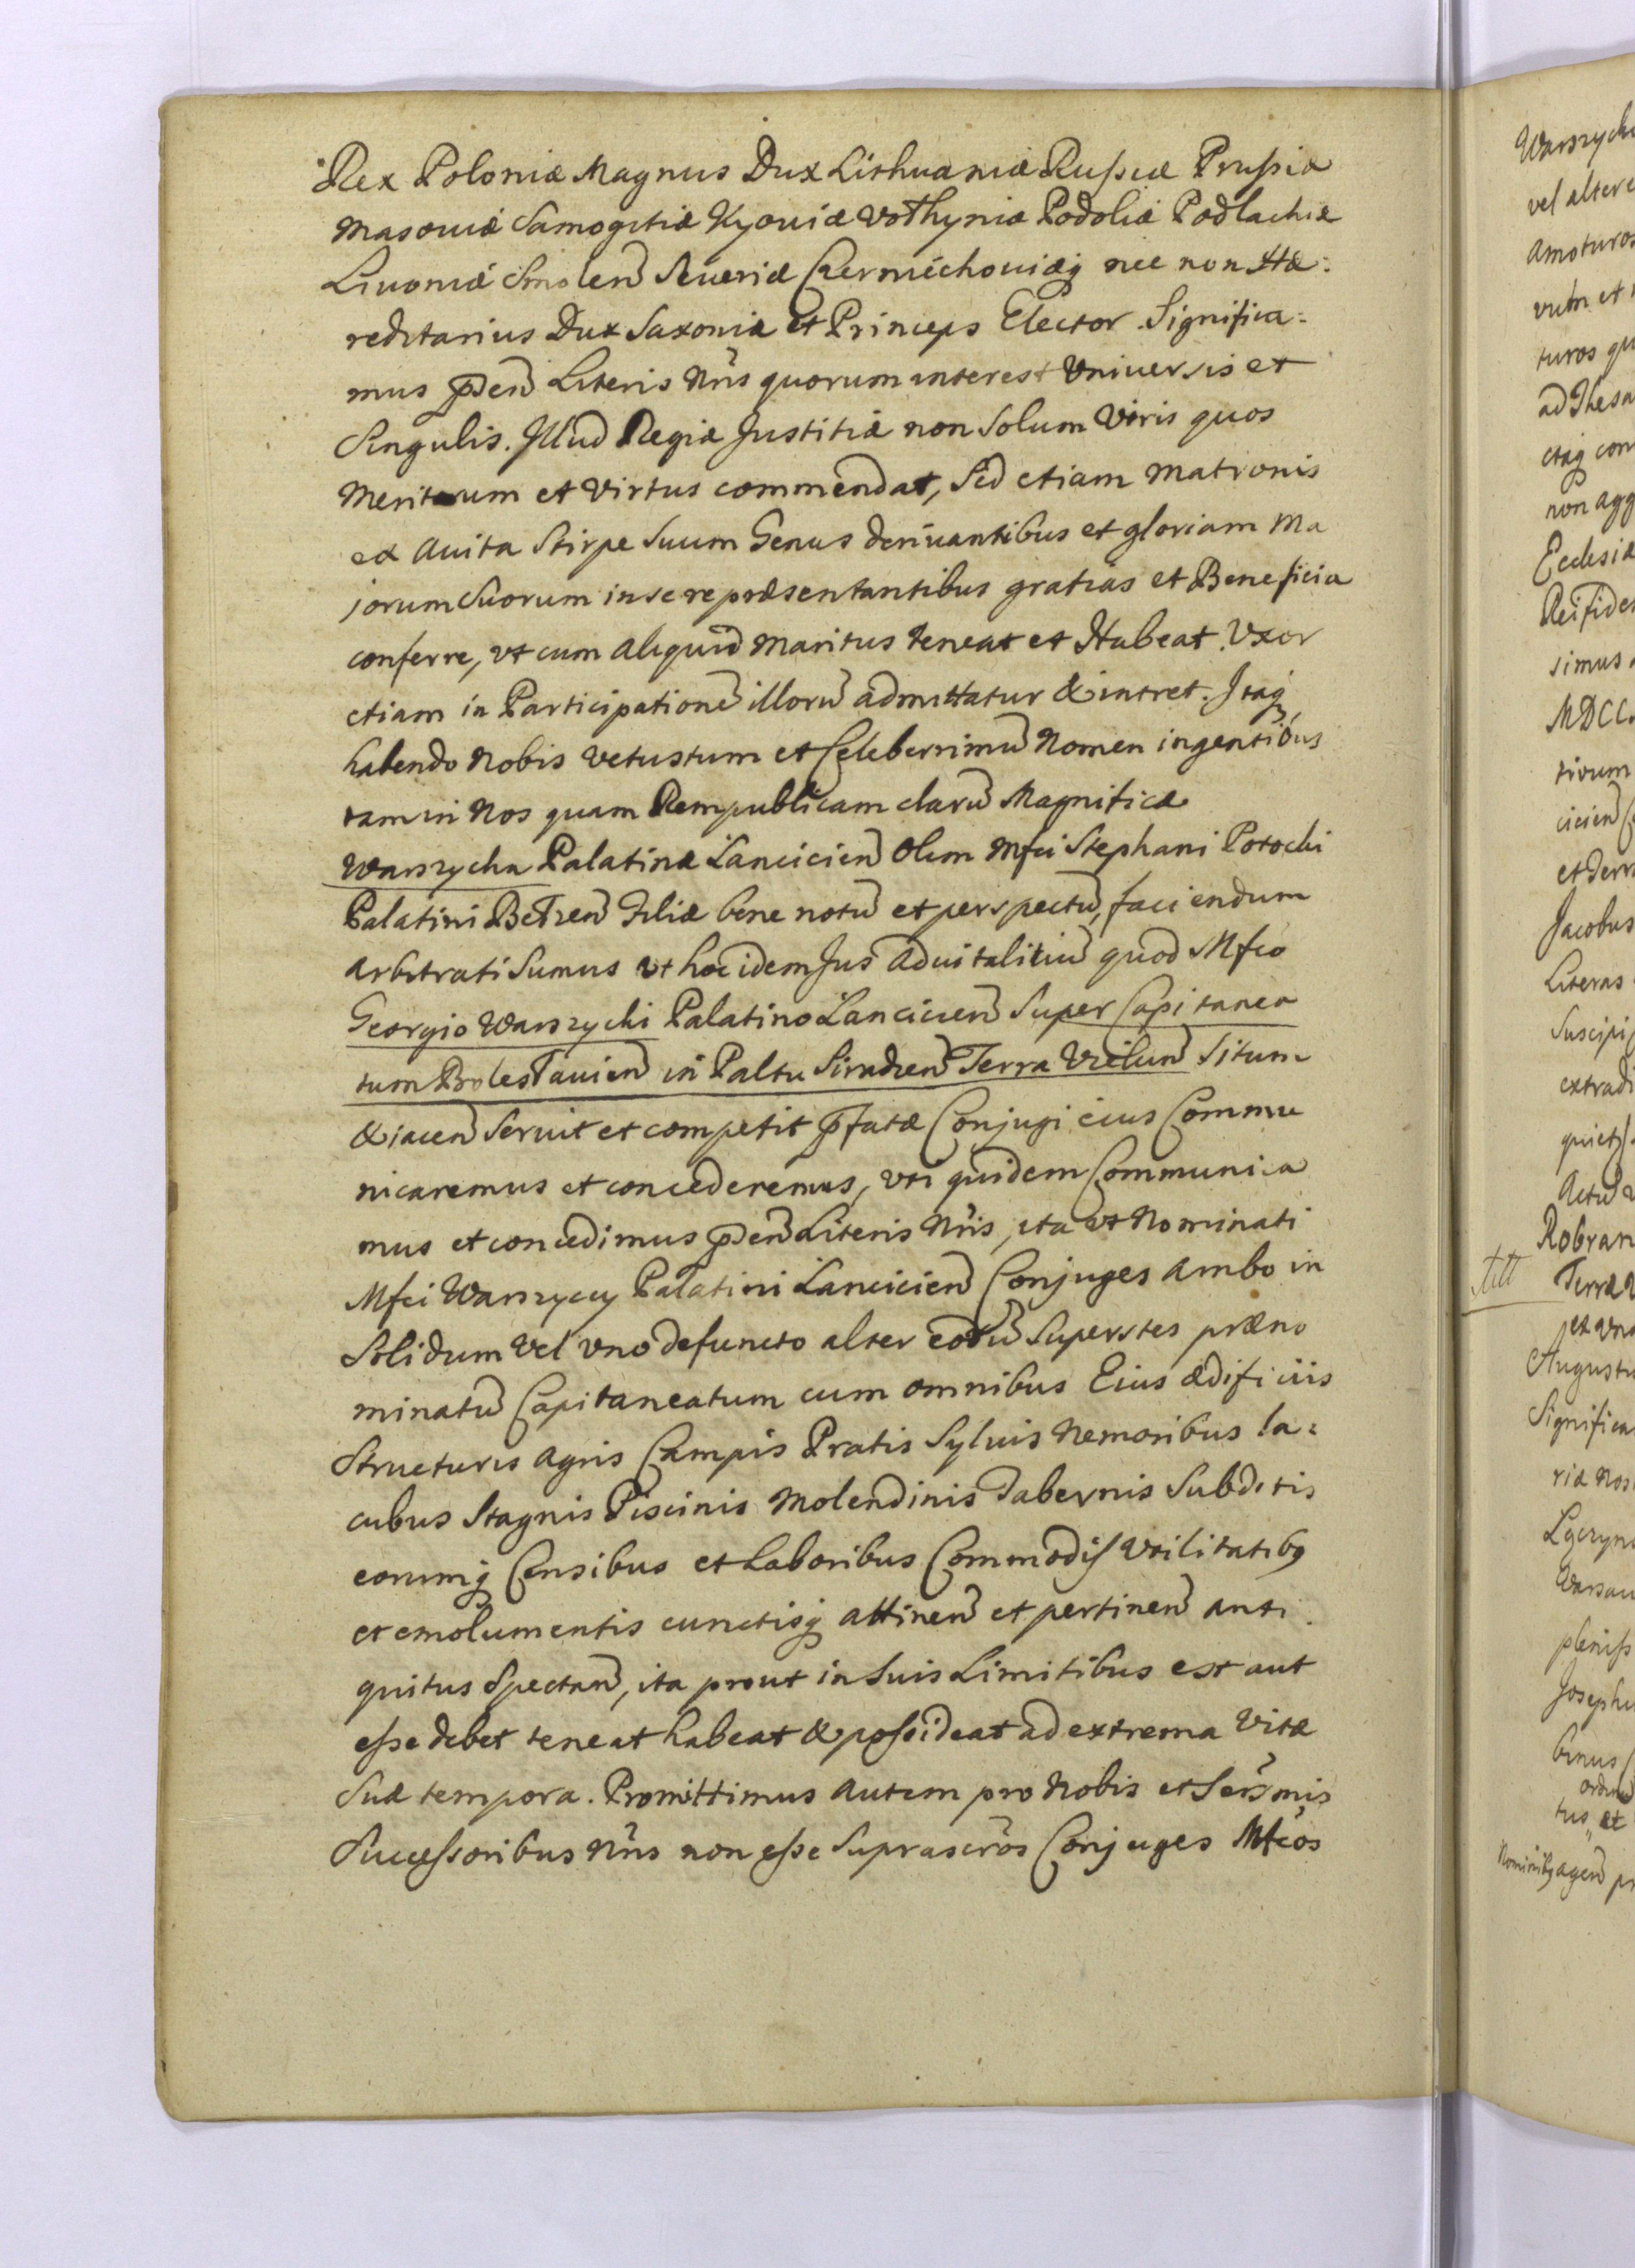 Rex Poloniæ Magnus Dux Lithuaniæ Russiæ Prussiæ
Masouiæ Samogitiæ Kyouiæ Volhyniæ Podoliæ Podlachiæ
Liuoniæ Smolen̄ Seueriæ Czerniechouiæq̃ nec non Hæ:
reditarius Dux Saxoniæ et Princeps Elector. Significa:
mus p̄den̄ Literis Nr̃is quorum interest Vniuersis et
Singulis. Illud Regiæ Justitiæ non Solum Viris quos
Meritorum et Virtus commendat, Sed etiam Matronis
ex Auita Stirpe Suum Genus deriuantibus et gloriam Ma
jorum Suorum in se repræsentantibus gratias et Beneficia
conferre, vt cum aliquid Maritus teneat et Habeat. Vxor
etiam in Participationē illorū admittatur & intret. Itaq̃
habendo Nobis Vetustum et Celeberrimū Nomen ingentibus
tam in Nos quam Rempublicam clarū Magnificæ
Warszycka Palatinæ Lancicien̄ Olim Mfci Stephani Potocki
Palatini Belzen̄ Filiæ bene notū et perspectū, faciendum
Arbitrati Sumus vt hoc idem Jus Aduitalitiū quod Mfco
Georgio Warszycki Palatino Lancicien̄ Super Capitanea
tum Bolestauien̄ in Paltu Siradien̄ Terra Vielun̄ Situm
& iacen̄ Seruit et competit p̄fatæ Conjugi eius Commu
nicaremus et concederemus, vti quidem Communica
mus et concedimus p̄den̄ Literis Nr̃is, ita vt Nominati
Mfci Warszyccy Palatini Lancicien̄ Conjuges Ambo in
Solidum Vel Vno defuncto alter eorū Superstes præno
minatū Capitaneatum cum omnibus Eius ædificiis
Structuris Agris Campis Pratis Syluis Nemoribus la:
cubus Stagnis Piscinis Molendinis Tabernis Subditis
eorumq̃ Censibus et Laboribus Commodis Vtilitatibq
et emolumentis cunctisq̃ attinen̄ et pertinen̄ anti
quitus Spectan̄, ita prout in Suis Limitibus est aut
esse debet teneat habeat & possideat ad extrema Vitæ
Suæ tempora. Promittimus Autem pro Nobis et Ser̃mis
Successoribus Nr̃is non esse Suprascr̃os Conjuges Mfcos
Warszycki
vel altere
Amoturos
turos qu
non agg
Ecclesiæ
simus
MDCC.
tivum
cicien̄
et Terr
Jacobus
Literas
Suscipi
extradi
Actū
Robran
Terræ
et Vno
Augustu
Significa
Josephu
binus
tus et